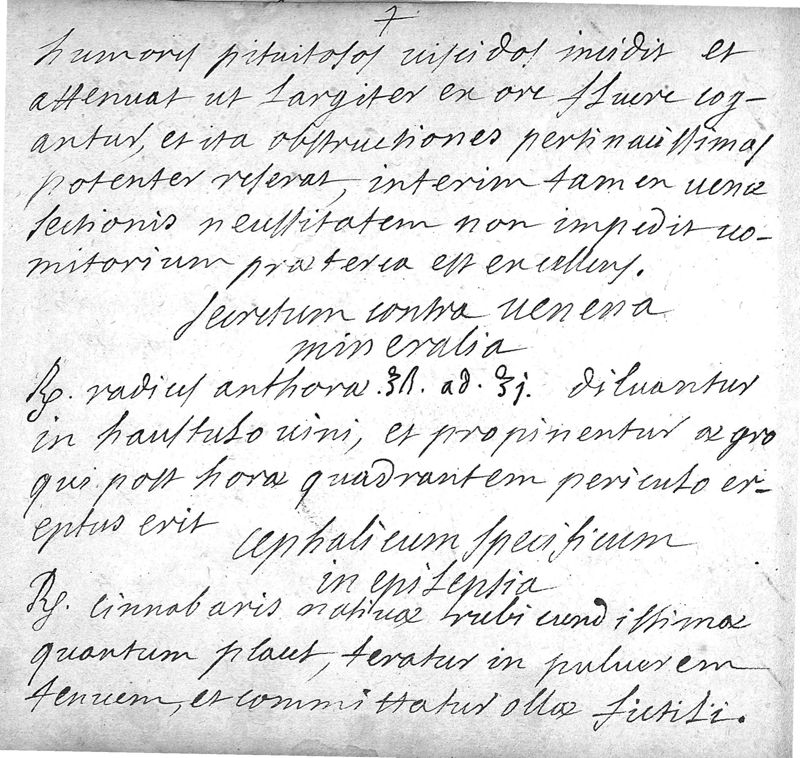 7
humores pituitosos viscidos incidit et
attenuat ut largiter ex ore fluere cog-
antur, et ita obstructiones pertinacissimas
potenter reserat, interim tamen venæ
sectionis necessitatem non impedit vo-
mitorium præterea est excellens.
Secretum contra venena
mineralia
℞. radicis anthoræ .℥ß. ad. ℥j. diluantur
in haustulo vini, et propinentur ægro
qui post horæ quadrantem periculo er-
eptus erit
Cephalicum specificum
in epilepsia
℞. cinnabaris nativæ rubicundissimæ
quantum placet, teratur in pulverem
tenuem, et committatur ollæ fictili.